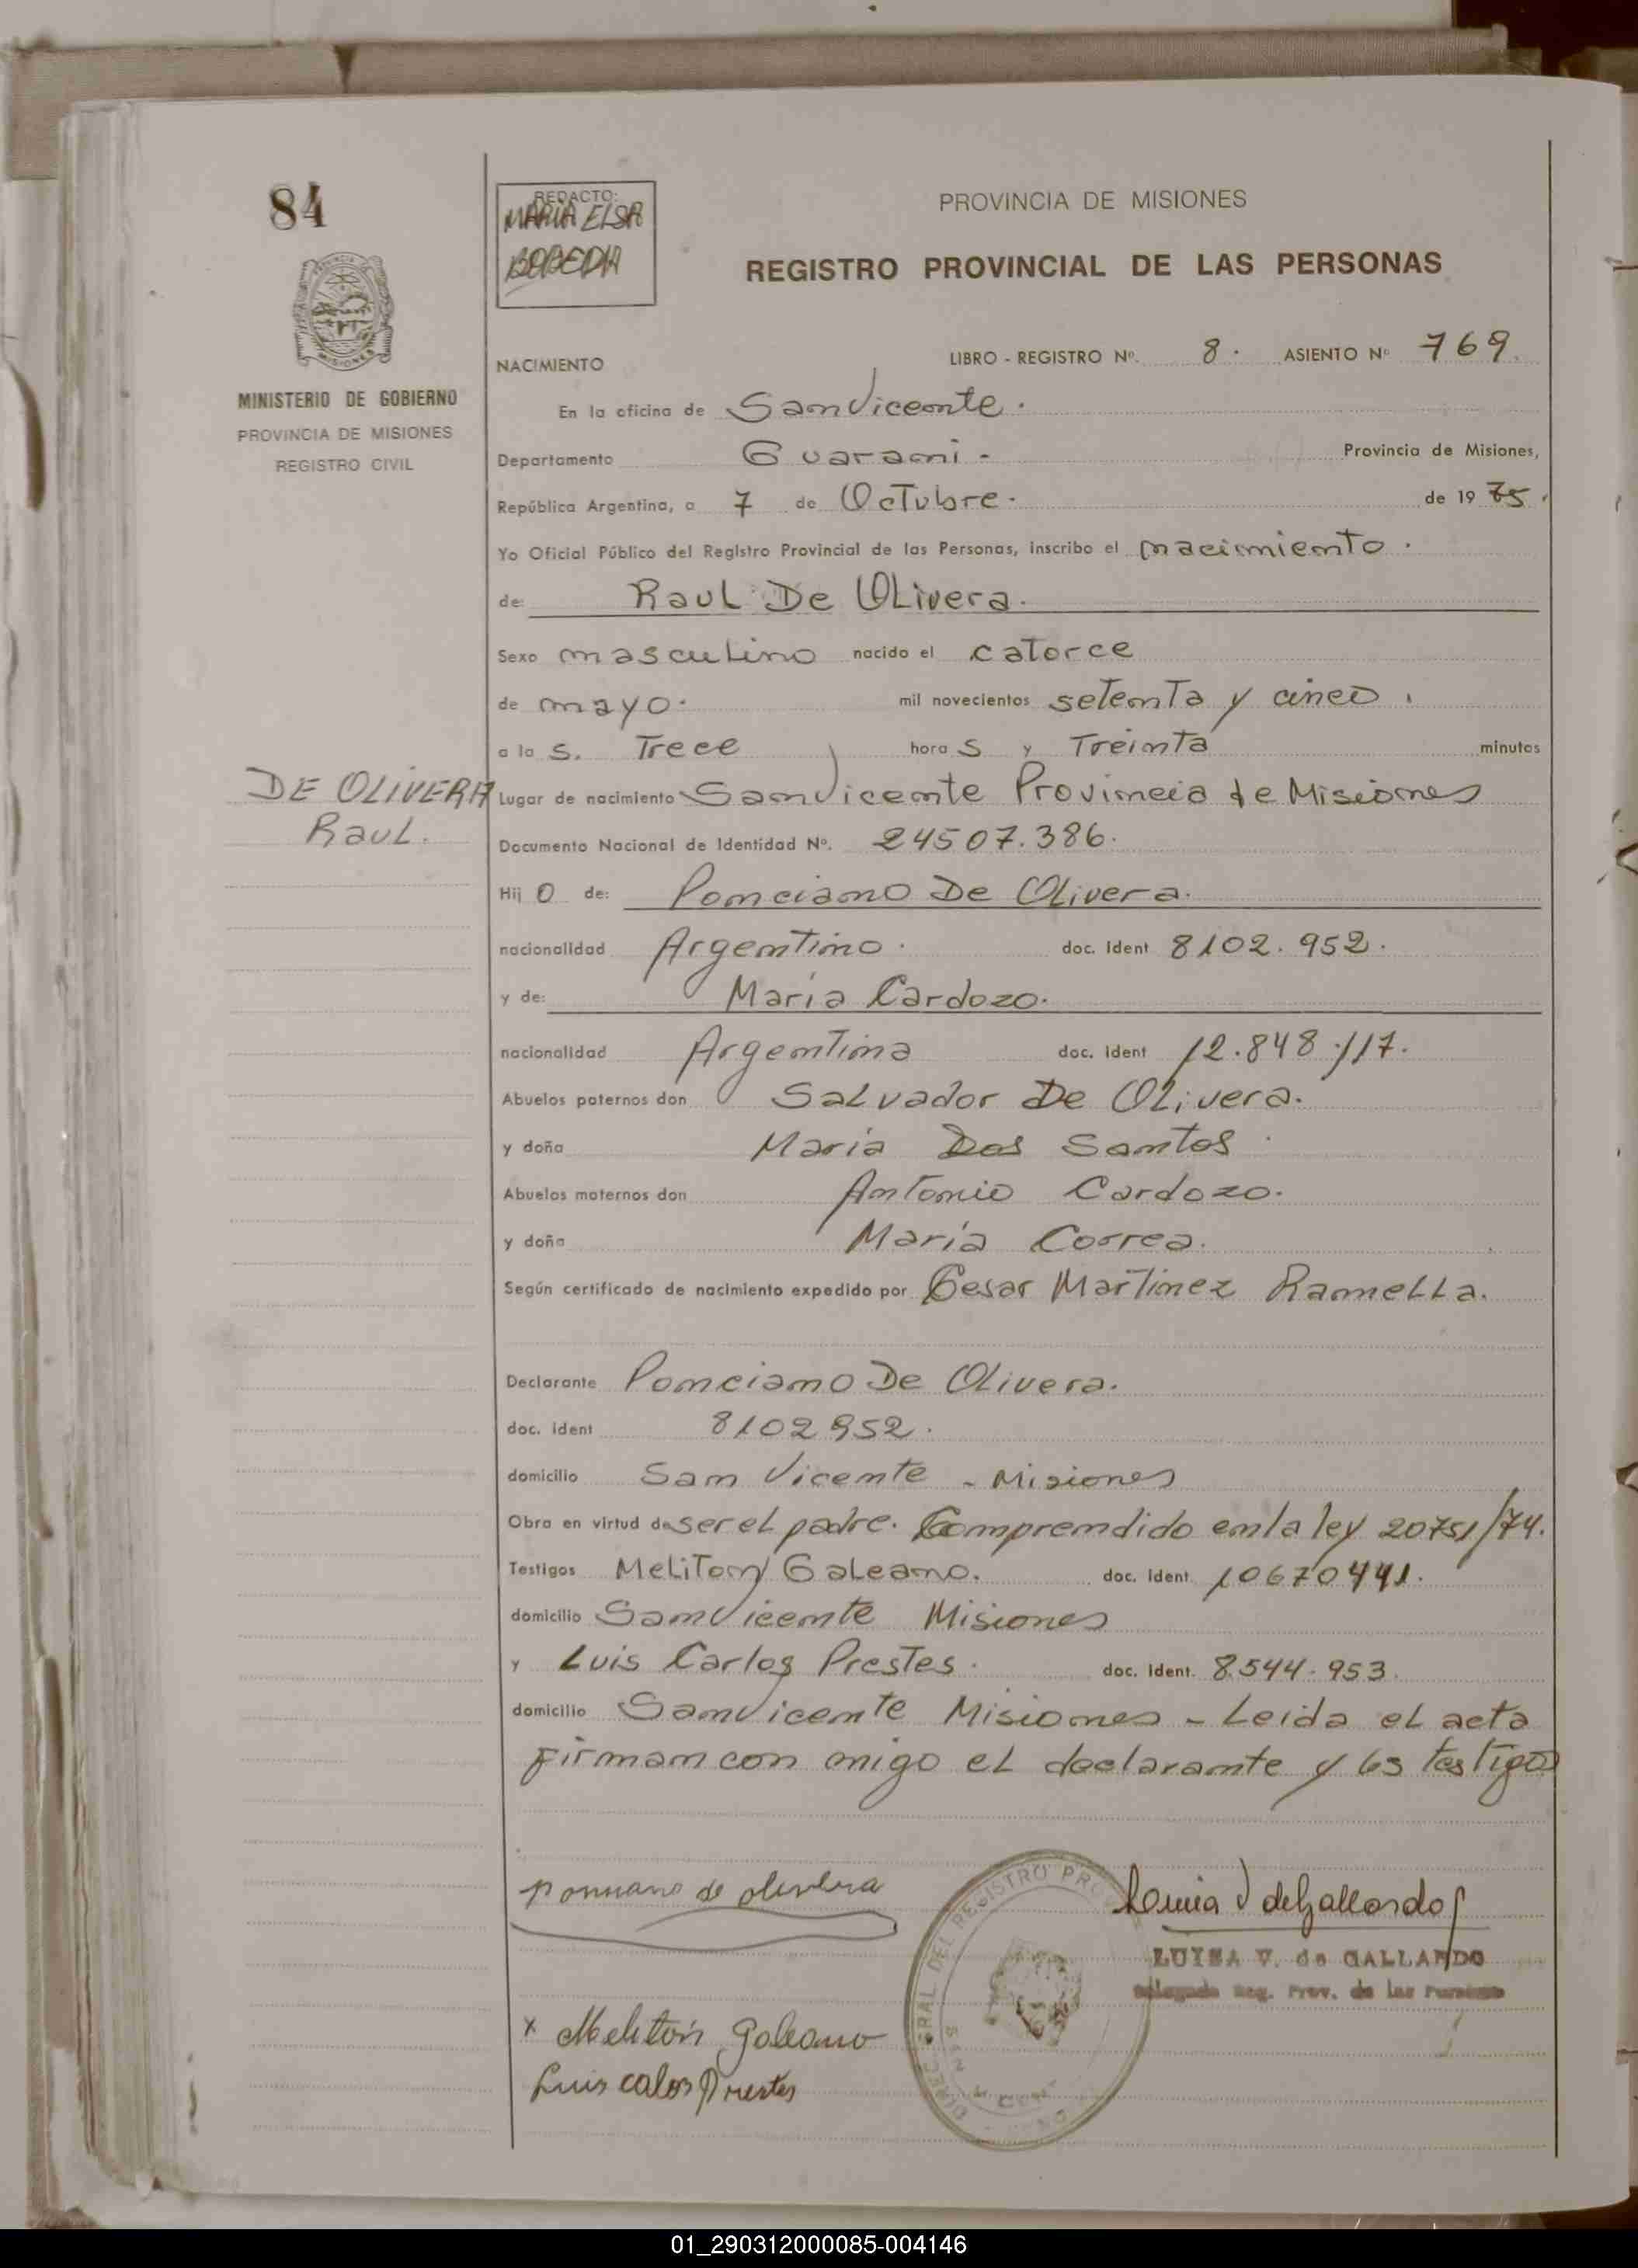 84
REDACTO:
MARIA ELSA
PROVINCIA DE MISIONES
REGISTRO PROVINCIAL DE LAS PERSONAS
MINISTERIO DE GOBIERNO
PROVINCIA DE MISIONES
REGISTRO CIVIL
NACIMIENTO
LIBRO - REGISTRO Nº. 8. ASIENTO Nº 769.
En la oficina de San Vicente.
Departamento Guarani - Provincia de Misiones,
República Argentina, a 7 de Octubre. de 1975.
Yo Oficial Público del Registro Provincial de las Personas, inscribo el nacimiento.
de: Raul De Olivera.
Sexo masculino nacido el catorce
de mayo. mil novecientos setenta y cinco.
a las. Trece horas y Treinta minutos
DE OLIVERA
Raul.
Lugar de nacimiento San Vicente Provincia de Misiones
Documento Nacional de Identidad Nº. 24507.386.
Hijo de: Ponciano De Olivera.
nacionalidad Argentino. doc. Ident 8102.952.
y de: María Cardozo.
nacionalidad Argentina doc. Ident 12.848.117.
Abuelos paternos don Salvador De Olivera.
y doña Maria Dos Santos.
Abuelos maternos don Antonio Cardozo.
y doña María Correa.
Según certificado de nacimiento expedido por Cesar Martinez Ramella.
Declarante Ponciano De Olivera.
doc. ident 8102952.
domicilio San Vicente - Misiones
Obra en virtud de ser el padre. Comprendido en la ley 20751/74.
Testigos Meliton Galeano. doc. Ident. 10670441.
domicilio San Vicente Misiones
y Luis Carlos Prestes. doc. Ident. 8.544.953.
domicilio San Vicente Misiones - Leida el acta
firman con migo el declarante y los testigos
de
LUISA V. de GALLARDO
Delegada Reg. Prov. de las Personas
x Melitón Galeano
Luis calos Prestes
01_290312000085-004146